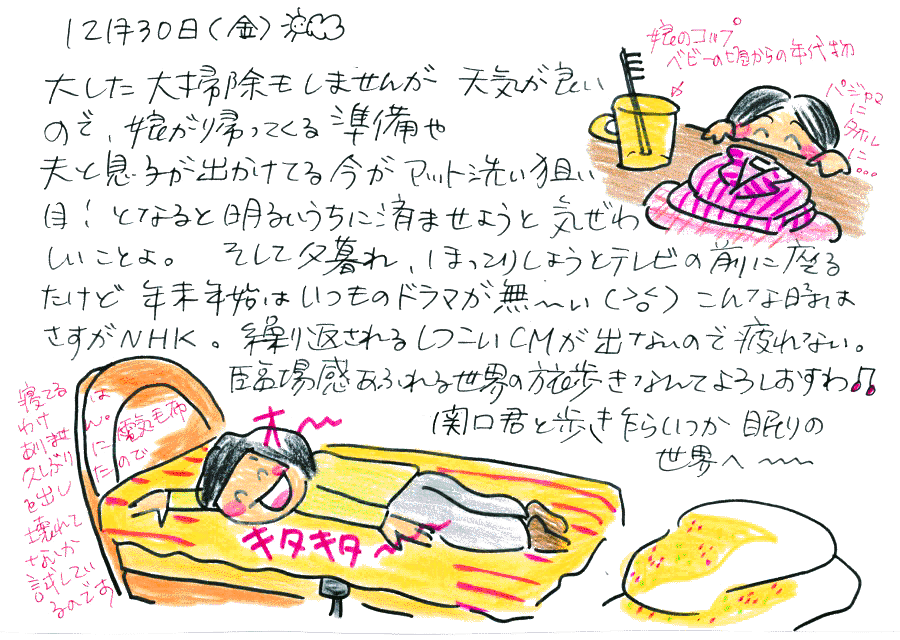 12月30日(金)
大した大掃除もしませんが 天気が良い
ので、娘が帰ってくる準備や
夫と息子が出かけてる今がマット洗い狙い
目！となると明るいうちに済ませようと気ぜわ
しいことよ。 そして夕暮れ、ほっこりしようとテレビの前に座る
たけど年末年始はいつものドラマが無〜い(>o<)こんな時は
さすがNHK。繰り返されるしつこいCMが出ないので疲れない。
臨場感あふれる世界の旅歩きなんてよろしおすわ♪
関口君と歩きながらいつか眠りの
世界へ〜〜
娘のコップ
ベビーの頃からの年代物
パジャマ
に
タオル
に...
オ〜
キタキタ〜
寝てるは
わけ
ありません。
久しぶりに電気毛布
を出したので
壊れて
ないか
試してい
るのです